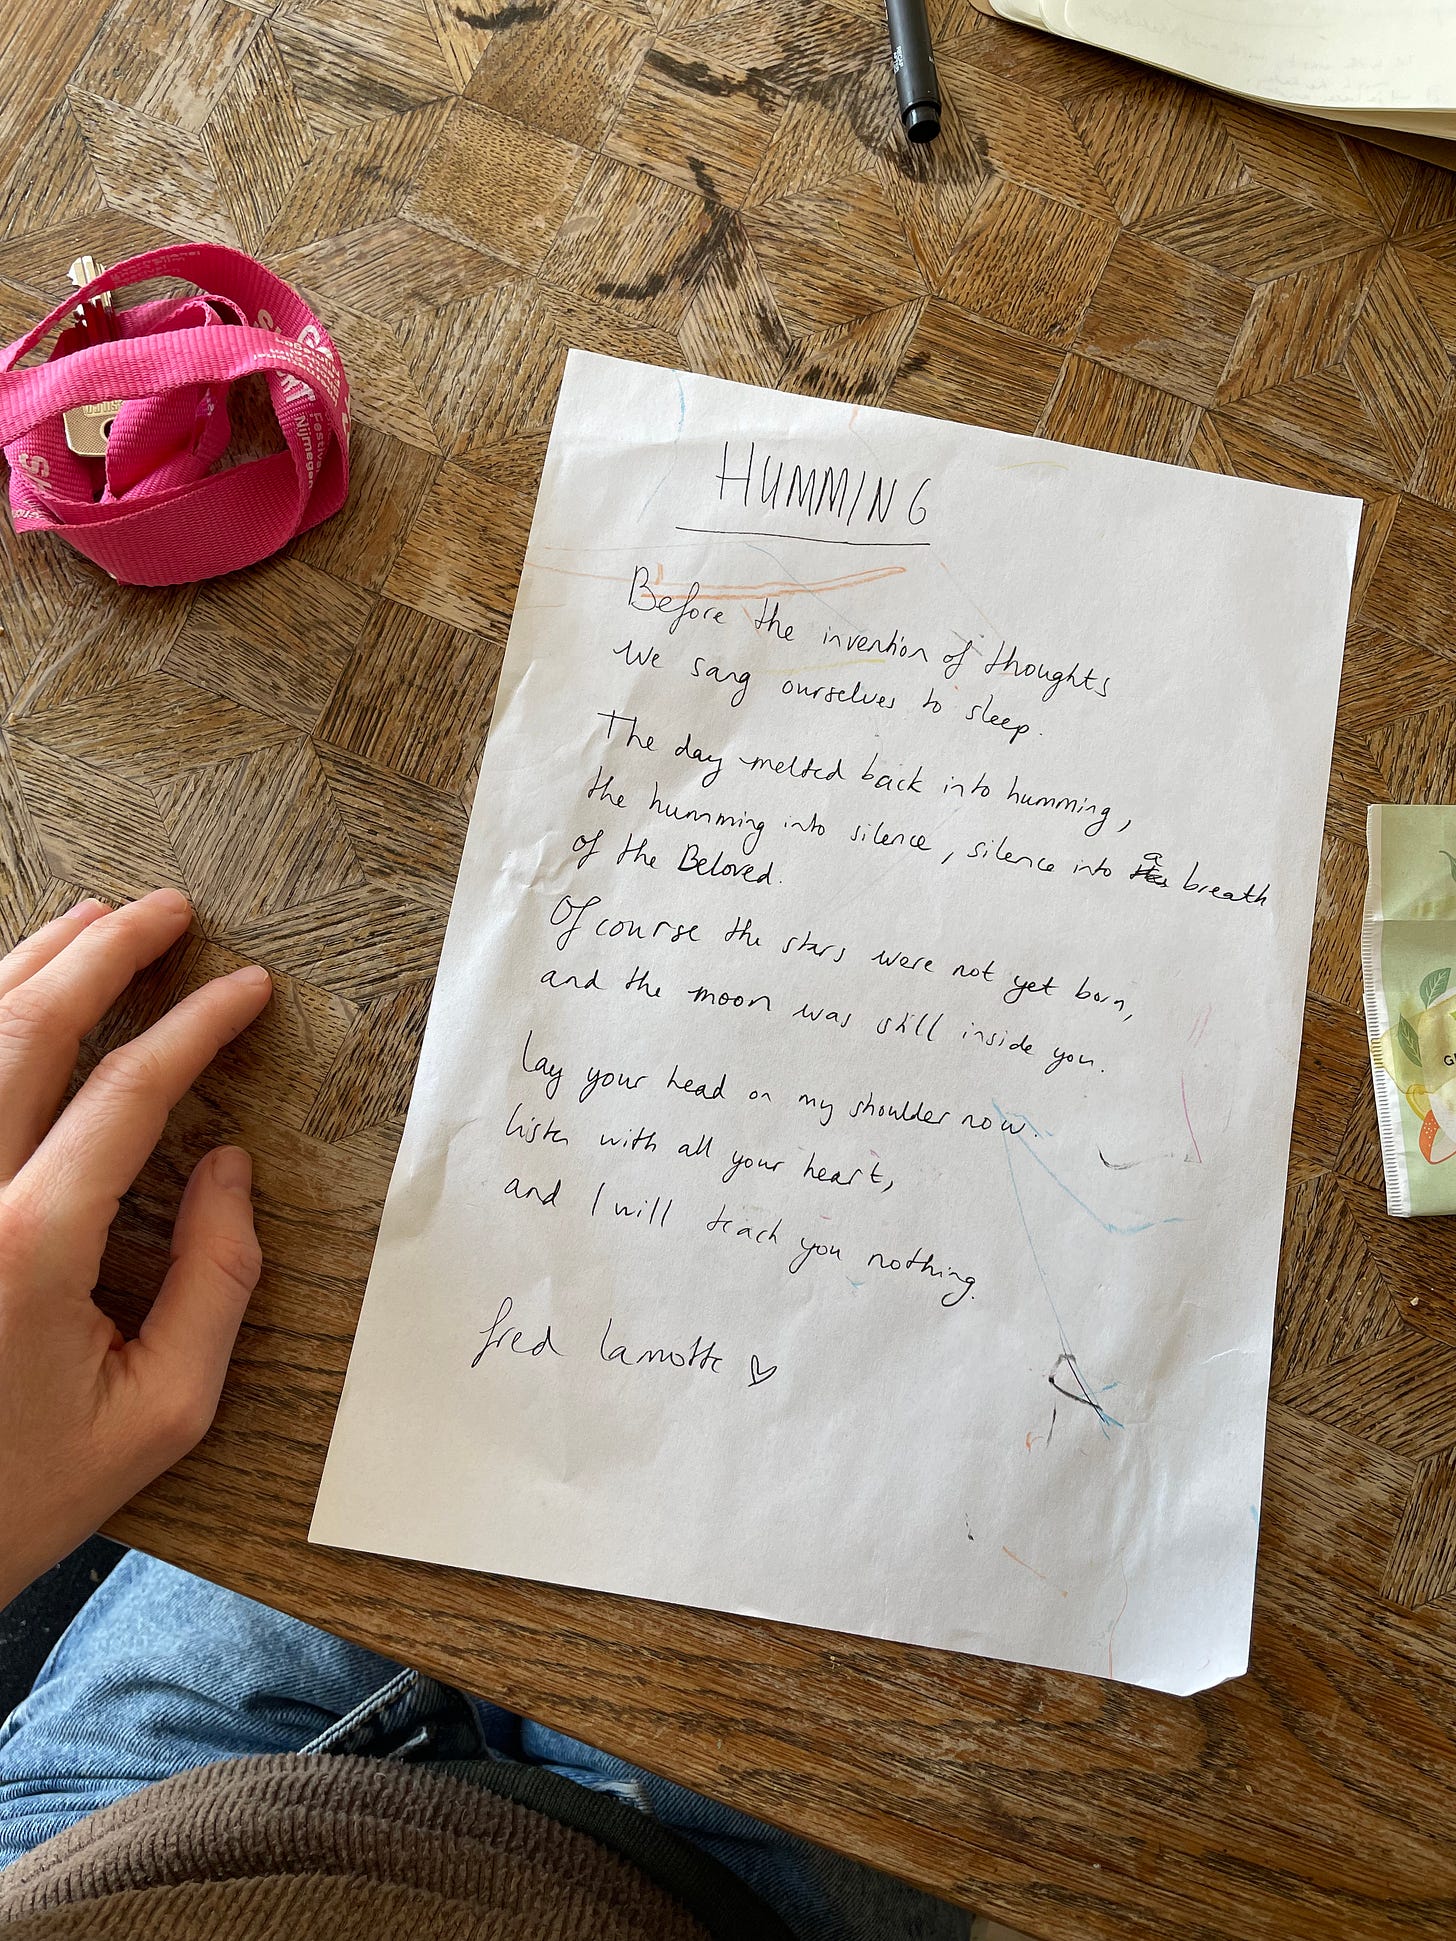 HUMMING
Before the invention of thoughts
We sang ourselves to sleep.
The day melted back into humming,
the humming into silence, silence into a breath
of the Beloved.
Of course the stars were not yet born,
and the moon was still inside you.
Lay your head on my shoulder now.
listen with all your heart,
and I will teach you nothing.
fred lamotte ♡
Festival
Nijmegen